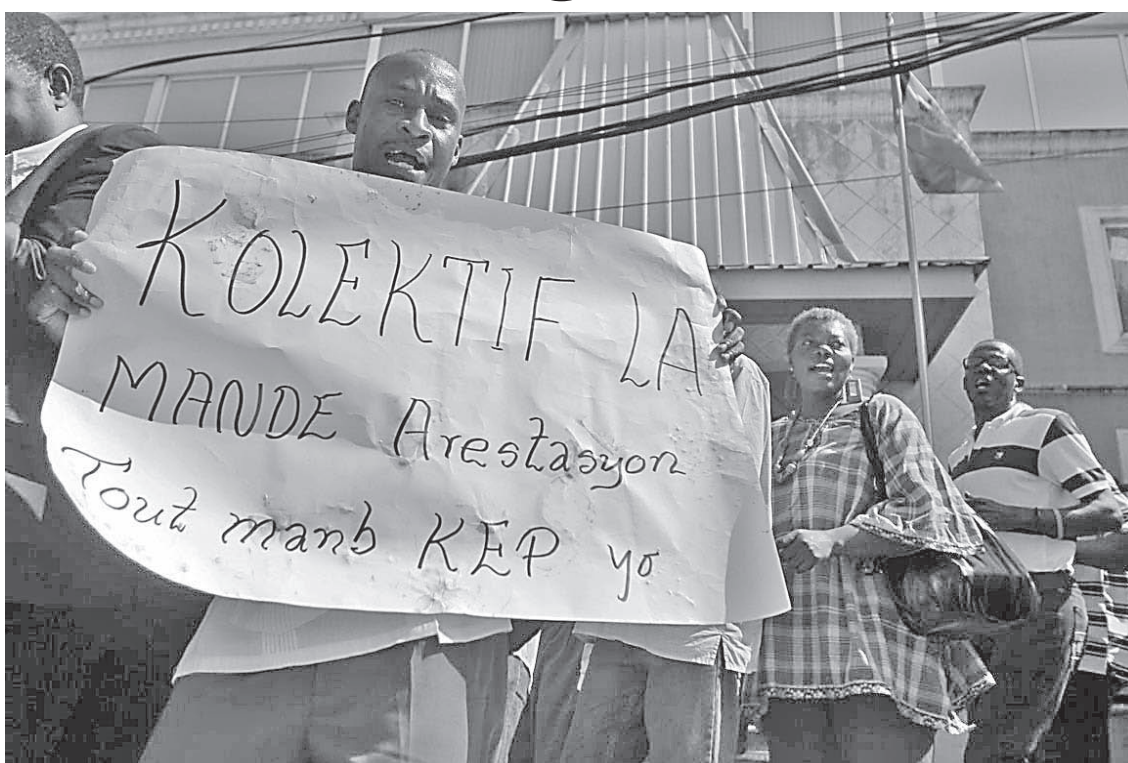 KOLEKTIF LA
MANDE Arestasyon
Tout manb KEP yo